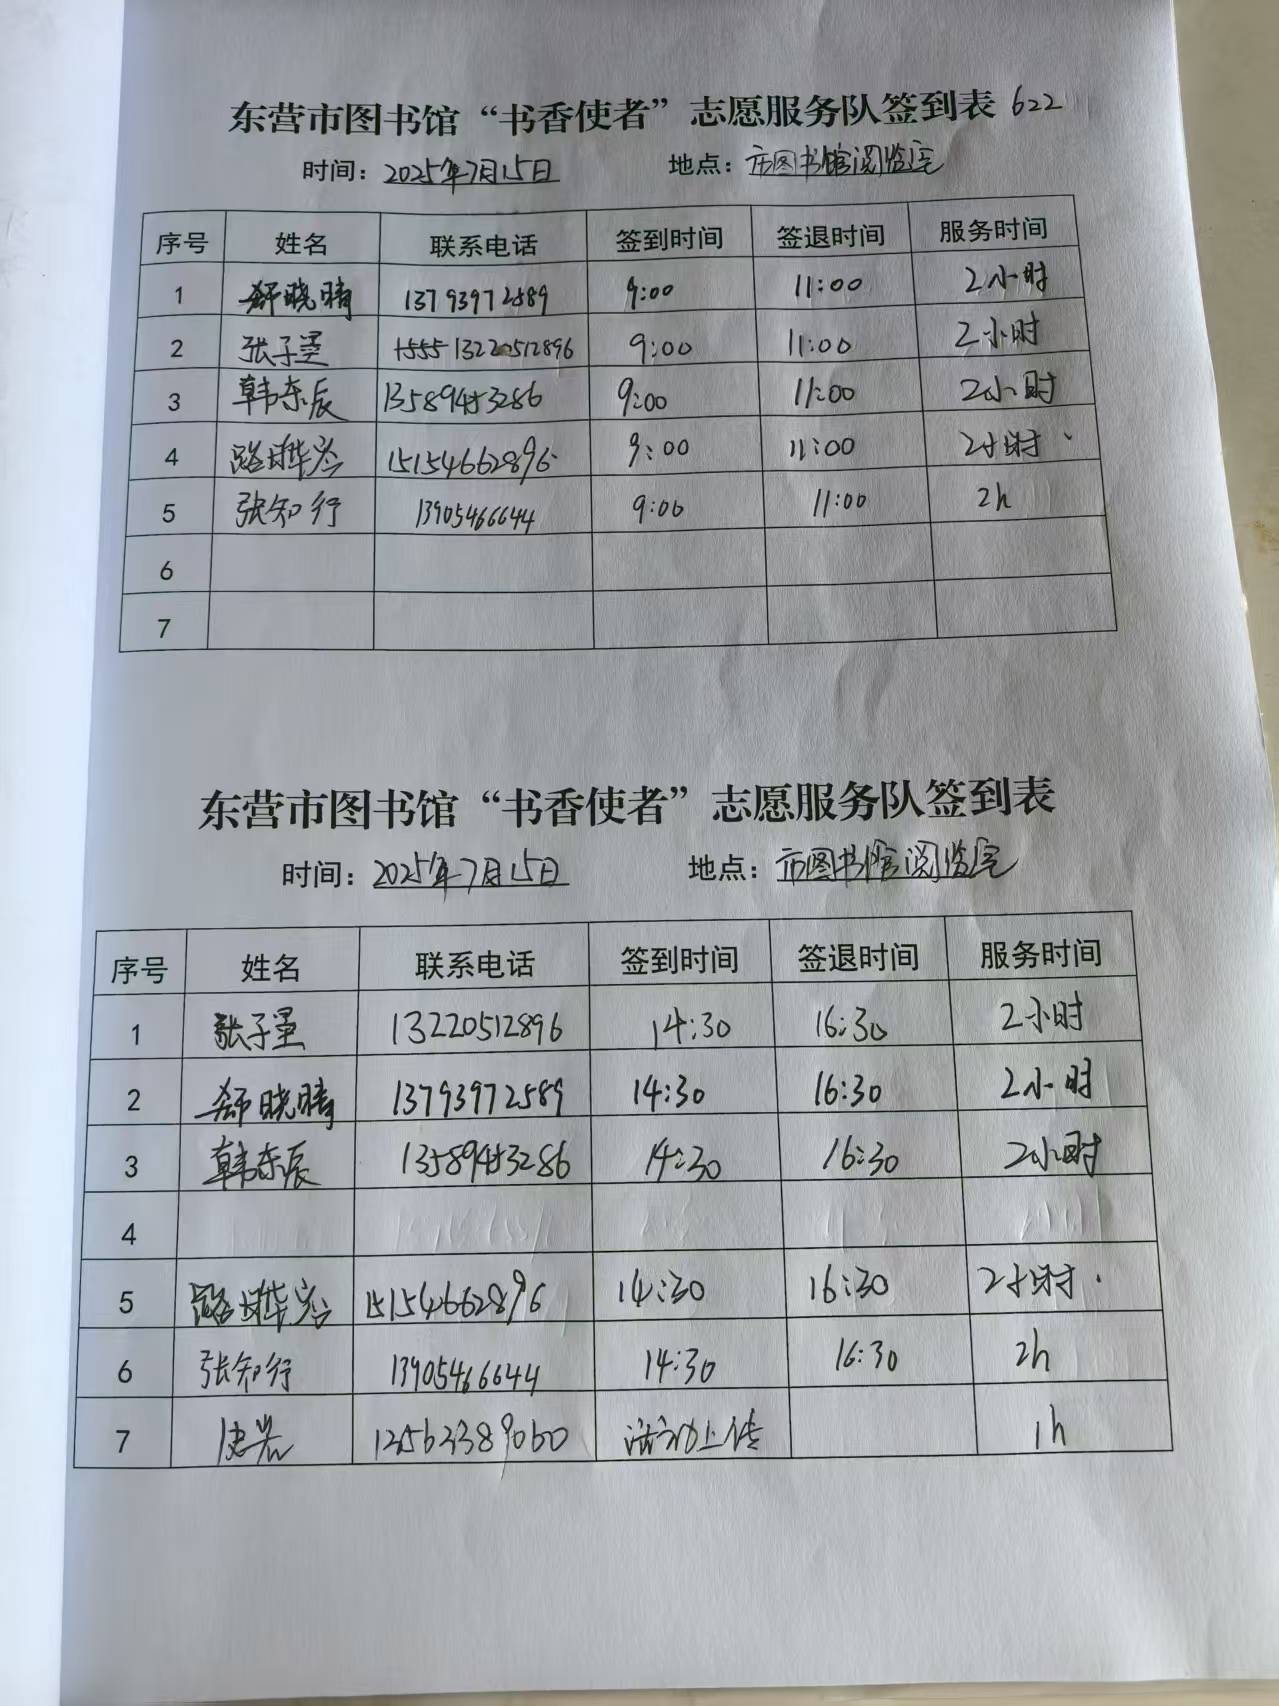 东营市图书馆“书香使者”志愿服务队签到表 622
时间：2025年7月15日 地点：市图书馆阅览室
序号 姓名 联系电话 签到时间 签退时间 服务时间
1 晓晴 13793972589 9:00 11:00 2小时
2 张子墨 13220512896 9:00 11:00 2小时
3 韩东辰 13589453286 9:00 11:00 2小时
4 路 15154662896 9:00 11:00 2小时
5 张知行 13905466644 9:00 11:00 2h
6
7
东营市图书馆“书香使者”志愿服务队签到表
时间：2025年7月15日 地点：市图书馆阅览室
序号 姓名 联系电话 签到时间 签退时间 服务时间
1 张子墨 13220512896 14:30 16:30 2小时
2 晓晴 13793972589 14:30 16:30 2小时
3 韩东辰 13589453286 14:30 16:30 2小时
4
5 路 15154662896 14:30 16:30 2小时
6 张知行 13905466644 14:30 16:30 2h
7 活动上传 1h